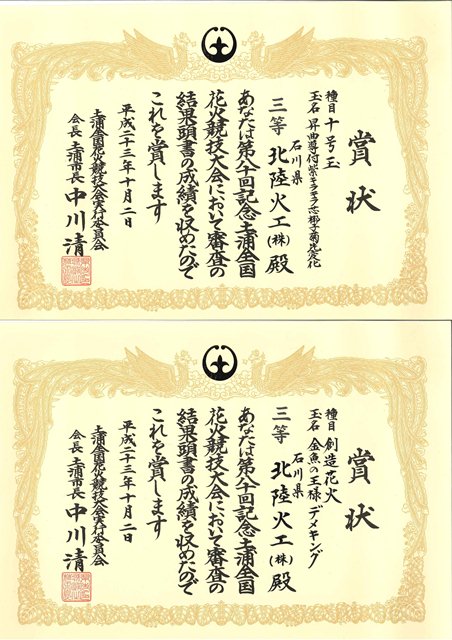 賞状
種目 十号玉
玉名 昇曲導付紫キラキラ芯椰子菊先変化
石川県
三等 北陸火工(株) 殿
あなたは第八十回記念土浦全国
花火競技大会において審査の
結果頭書の成績を収めたので
これを賞します
平成二十三年十月二日
土浦全国花火競技大会実行委員会
会長 土浦市長 中川清
賞状
種目 創造花火
玉名 金魚の王様デメキング
石川県
三等 北陸火工(株) 殿
あなたは第八十回記念土浦全国
花火競技大会において審査の
結果頭書の成績を収めたので
これを賞します
平成二十三年十月二日
土浦全国花火競技大会実行委員会
会長 土浦市長 中川清